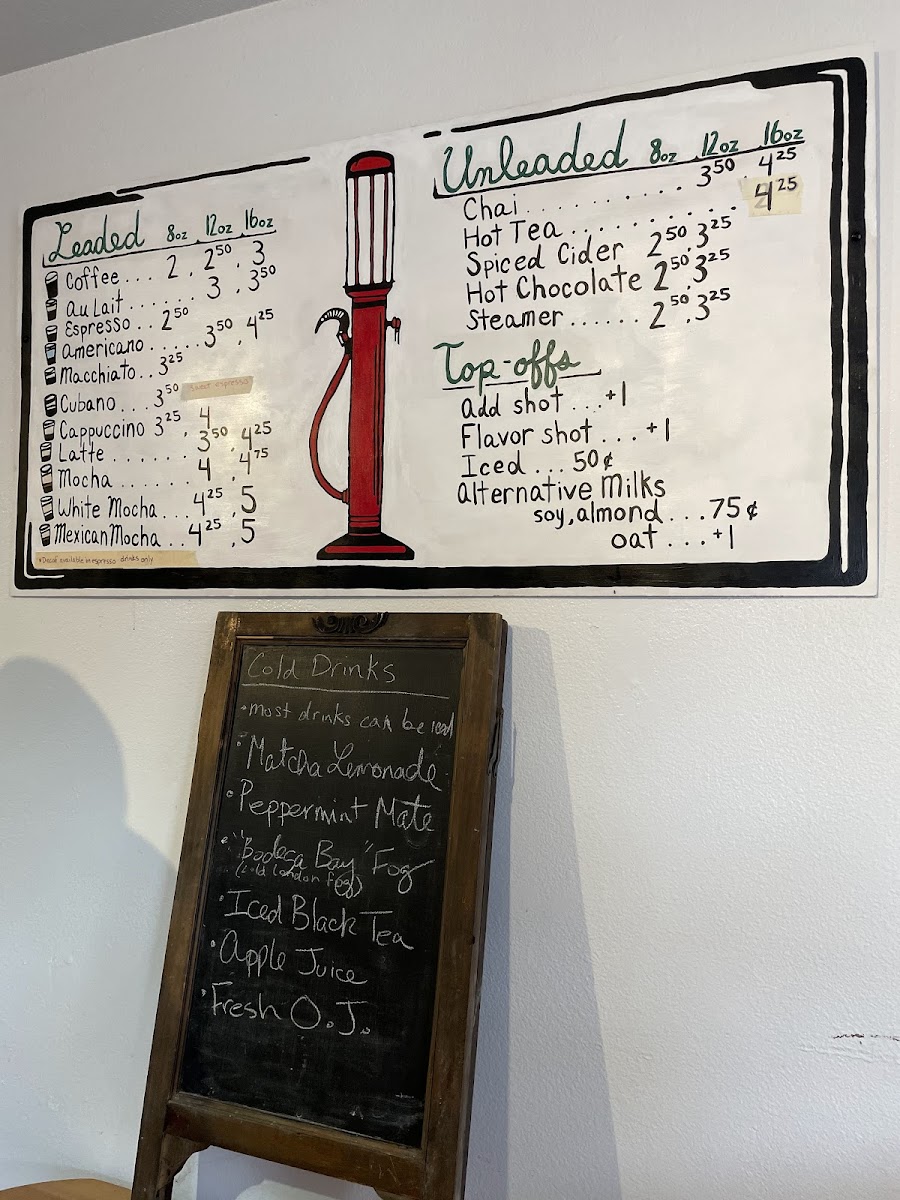 Leaded 8oz 12oz 16oz
Coffee... 2 . 2⁵⁰ . 3
Au Lait...... 3 . 3⁵⁰
Espresso.. 2⁵⁰
Americano..... 3⁵⁰ . 4²⁵
Macchiato.. 3²⁵
Cubano... 3⁵⁰ sweet espresso
Cappuccino 3²⁵ . 4
Latte....... 3⁵⁰ . 4²⁵
Mocha...... 4 . 4⁷⁵
White Mocha... 4²⁵ . 5
Mexican Mocha.. 4²⁵ . 5
*Decaf available in espresso drinks only
Unleaded 8oz 12oz 16oz
Chai......... 3⁵⁰ . 4²⁵
Hot Tea.......... 4²⁵
Spiced Cider 2⁵⁰ . 3²⁵
Hot Chocolate 2⁵⁰ . 3²⁵
Steamer...... 2⁵⁰ . 3²⁵
Top-offs
add shot ...+1
Flavor shot ...+1
Iced ... 50¢
alternative Milks
soy, almond ...75¢
oat ...+1
Cold Drinks
•most drinks can be iced
•Matcha Lemonade
•Peppermint Mate
•"Bodega Bay" Fog
(cold london fog)
•Iced Black Tea
•Apple Juice
•Fresh O.J.